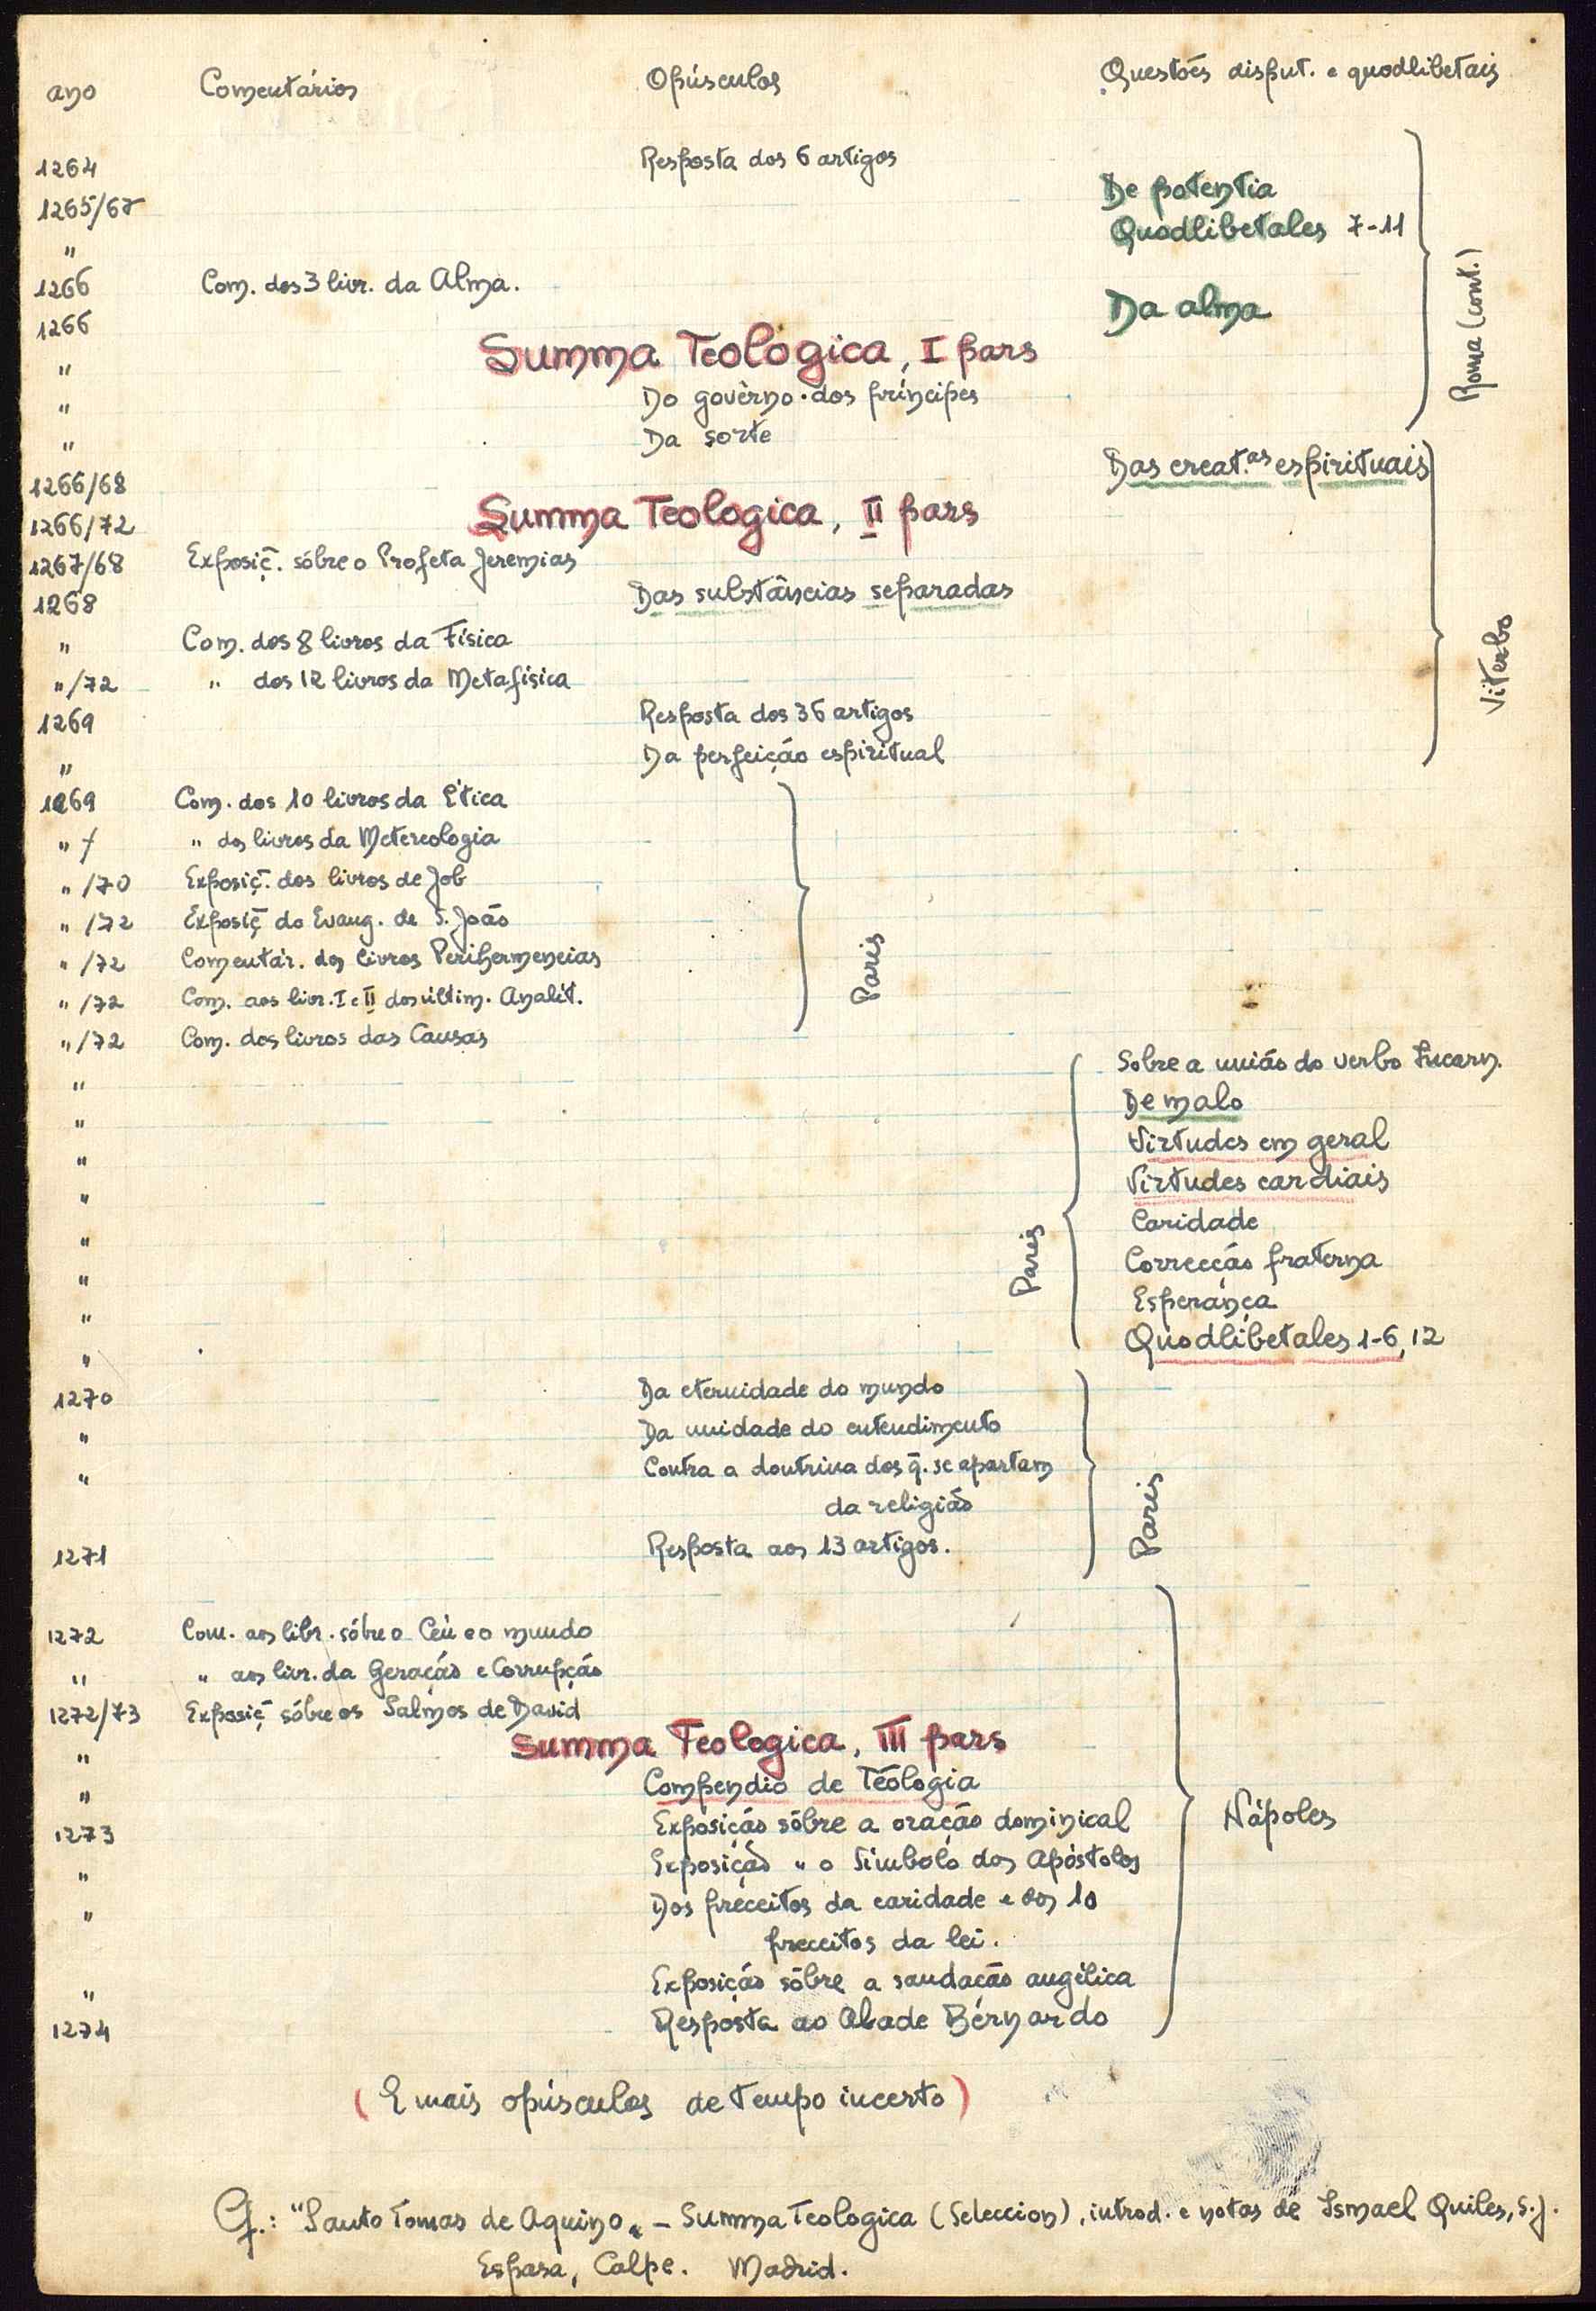 ano Comentários Opúsculos Questões disput. e quodlibetais
1264 Resposta dos 6 artigos
1265/67 De potentia
" Quodlibetales 7-11
1266 Com. dos 3 livr. da Alma.
1266 Da alma
" Summa Teologica, I pars
" Do govêrno dos príncipes
" Da sorte
Roma (cont.)
1266/68 Das creat.as espirituais
1266/72 Summa Teologica, II pars
1267/68 Exposiç. sôbre o Profeta Jeremias
1268 Das substâncias separadas
" Com. dos 8 livros da Física
"/72 " dos 12 livros da Metafísica
1269 Resposta dos 36 artigos
" Da perfeição espiritual
Viterbo
1269 Com. dos 10 livros da Ética
" / " dos livros da Metereologia
" /70 Exposiç. dos livros de Job
" /72 Exposiç do Evang. de S. João
" /72 Comentár. dos livros Perihermeneias
" /72 Com. aos livr. I e II dos últim. Analít.
" /72 Com. dos livros das Causas
Paris
" Sobre a união do verbo Incarn.
" De malo
" Virtudes em geral
" Virtudes cardiais
" Caridade
" Correcção fraterna
" Esperança
" Quodlibetales 1-6, 12
Paris
1270 Da eternidade do mundo
" Da unidade do entendimento
" Contra a doutrina dos q̄. se apartam
da religião
1271 Resposta aos 13 artigos.
Paris
1272 Com. aos libr. sôbre o Céu e o mundo
" " aos livr. da Geração e Corrupção
1272/73 Exposiç sôbre os Salmos de David
" Summa Teologica, III pars
" Compendio de Teologia
1273 Exposição sôbre a oração dominical
" Exposição " o Símbolo dos Apóstolos
" Dos preceitos da caridade e dos 10
preceitos da lei.
" Exposição sôbre a saudação angélica
1274 Resposta ao Abade Bernardo
Nápoles
(E mais opúsculos de tempo incerto)
Cf.: "Santo Tomas de Aquino" - Summa Teologica (Seleccion), introd. e notas de Ismael Quiles, S.J.
Espasa, Calpe. Madrid.